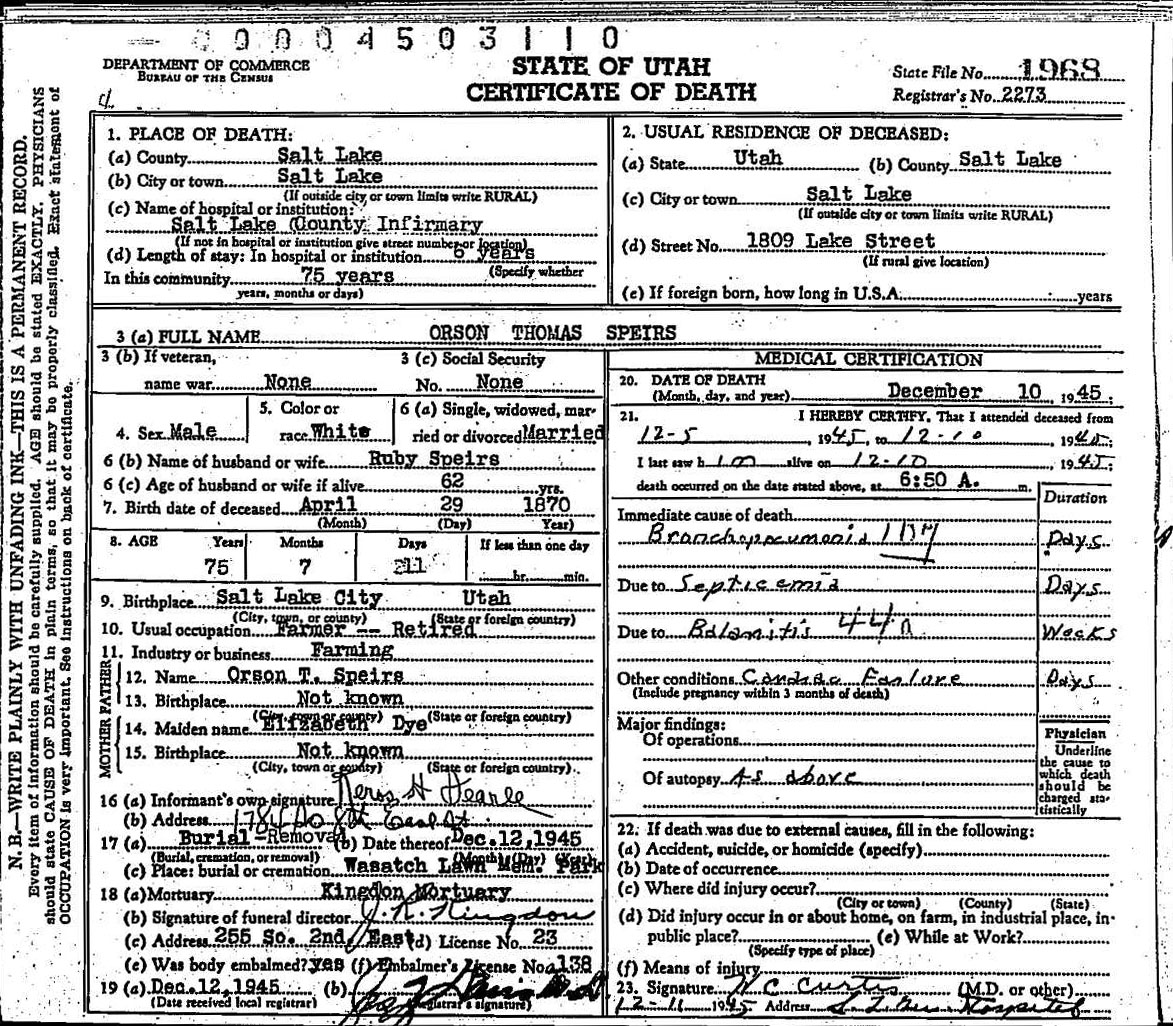 0 0 0 4 5 0 3 1 1 0
DEPARTMENT OF COMMERCE
BUREAU OF THE CENSUS
STATE OF UTAH
CERTIFICATE OF DEATH
State File No. 1968
Registrar's No. 2273
N. B.—WRITE PLAINLY WITH UNFADING INK—THIS IS A PERMANENT RECORD.
Every item of information should be carefully supplied. AGE should be stated EXACTLY. PHYSICIANS
should state CAUSE OF DEATH in plain terms, so that it may be properly classified. Exact statement of
OCCUPATION is very important. See instructions on back of certificate.
1. PLACE OF DEATH:
(a) County Salt Lake
(b) City or town Salt Lake
(If outside city or town limits write RURAL)
(c) Name of hospital or institution:
Salt Lake County Infirmary
(If not in hospital or institution give street number or location)
(d) Length of stay: In hospital or institution 6 years
(Specify whether
In this community 75 years
years, months or days)
2. USUAL RESIDENCE OF DECEASED:
(a) State Utah (b) County Salt Lake
(c) City or town Salt Lake
(If outside city or town limits write RURAL)
(d) Street No. 1809 Lake Street
(If rural give location)
(e) If foreign born, how long in U.S.A. years
3 (a) FULL NAME ORSON THOMAS SPEIRS
3 (b) If veteran,
name war None
3 (c) Social Security
No. None
4. Sex Male
5. Color or
race White
6 (a) Single, widowed, mar-
ried or divorced Married
6 (b) Name of husband or wife Ruby Speirs
6 (c) Age of husband or wife if alive 62 yrs.
7. Birth date of deceased April 29 1870
(Month) (Day) Year)
8. AGE Years Months Days If less than one day
75 7 11 hr. min.
9. Birthplace Salt Lake City Utah
(City, town, or county) (State or foreign country)
10. Usual occupation Farmer -- Retired
11. Industry or business Farming
FATHER
12. Name Orson T. Speirs
13. Birthplace Not known
(City, town or county) (State or foreign country)
MOTHER
14. Maiden name Elizabeth Dye
15. Birthplace Not known
(City, town or county) (State or foreign country)
16 (a) Informant's own signature H
(b) Address 1784 So 8th East St
17 (a) Burial-Removal (b) Date thereof Dec.12,1945
(Burial, cremation, or removal) (Month) (Day) (Year)
(c) Place: burial or cremation Wasatch Lawn Mem. Park
18 (a) Mortuary Kingdon Mortuary
(b) Signature of funeral director J. R. Kingdon
(c) Address 255 So. 2nd, East (d) License No. 23
(e) Was body embalmed? yes (f) Embalmer's License No. 138
19 (a) Dec.12,1945 (b)
(Date received local registrar) (Registrar's signature)
MEDICAL CERTIFICATION
20. DATE OF DEATH
(Month, day, and year) December 10, 1945;
21. I HEREBY CERTIFY, That I attended deceased from
12-5, 1945, to 12-10, 1945,
I last saw him alive on 12-10, 1945
death occurred on the date stated above, at 6:50 A. m.
Duration
Immediate cause of death
Bronchopneumonia 107 Days
Due to Septicemia Days
Due to Balanitis 44a Weeks
Other conditions Cardiac Failure Days
(Include pregnancy within 3 months of death)
Major findings:
Of operations
Of autopsy As above
Physician
Underline
the cause to
which death
should be
charged sta-
tistically
22. If death was due to external causes, fill in the following:
(a) Accident, suicide, or homicide (specify)
(b) Date of occurrence
(c) Where did injury occur?
(City or town) (County) (State)
(d) Did injury occur in or about home, on farm, in industrial place, in-
public place? (e) While at Work?
(Specify type of place)
(f) Means of injury
23. Signature W C Curtis (M.D. or other)
12-11 1945 Address S. L. Gen Hospital